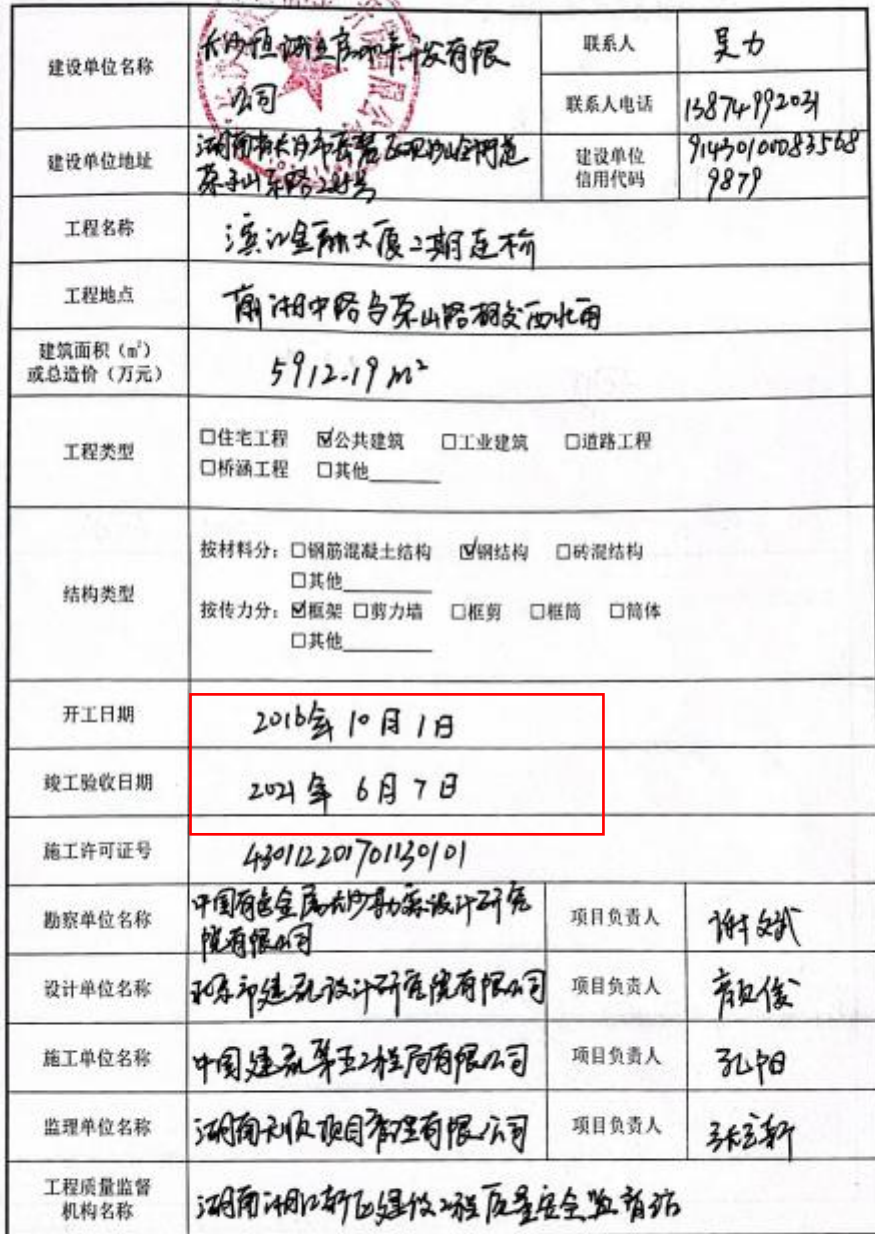 建设单位名称
长沙恒诚置房地产开发有限
公司
联系人
吴力
联系人电话
13874992031
建设单位地址
湖南省长沙市岳麓区观沙岭街道
茶子山东路
号
建设单位
信用代码
91430100083568
9879
工程名称
滨江金融大厦二期连桥
工程地点
潇湘中路与茶山路相交西北角
建筑面积（㎡）
或总造价（万元）
5912.19 m²
工程类型
□住宅工程 ☑公共建筑 □工业建筑 □道路工程
□桥涵工程 □其他______
结构类型
按材料分：□钢筋混凝土结构 ☑钢结构 □砖混结构
□其他________
按传力分：☑框架 □剪力墙 □框剪 □框筒 □筒体
□其他________
开工日期
2016年10月1日
竣工验收日期
2021年6月7日
施工许可证号
430112201701130101
勘察单位名称
中国有色金属长沙勘察设计研究
院有限公司
项目负责人
谢文斌
设计单位名称
北京市建筑设计研究院有限公司
项目负责人
颜俊
施工单位名称
中国建筑第五工程局有限公司
项目负责人
孔
监理单位名称
湖南天顺项目管理有限公司
项目负责人
张立新
工程质量监督
机构名称
湖南湘江新区建设工程质量安全监督站